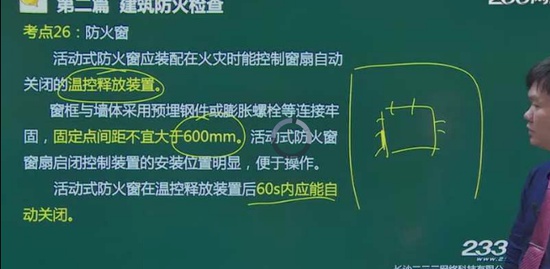 第二篇 建筑防火检查
考点26：防火窗
活动式防火窗应装配在火灾时能控制窗扇自动
关闭的温控释放装置。
窗框与墙体采用预埋钢件或膨胀螺栓等连接牢
固，固定点间距不宜大于600mm。活动式防火窗
窗扇启闭控制装置的安装位置明显，便于操作。
活动式防火窗在温控释放装置后60s内应能自
动关闭。
233
www.2
长沙二三三网络科技有限公